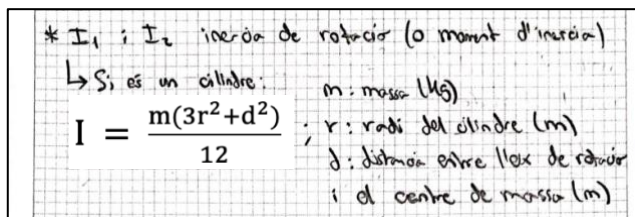 * I₁ i I₂ inercia de rotació (o moment d'inercia)
↳ Si és un cilindre:
m: massa (Kg)
I = m(3r²+d²)/12 ; r: radi del cilindre (m)
d: distancia entre l'eix de rotació
i el centre de massa (m)